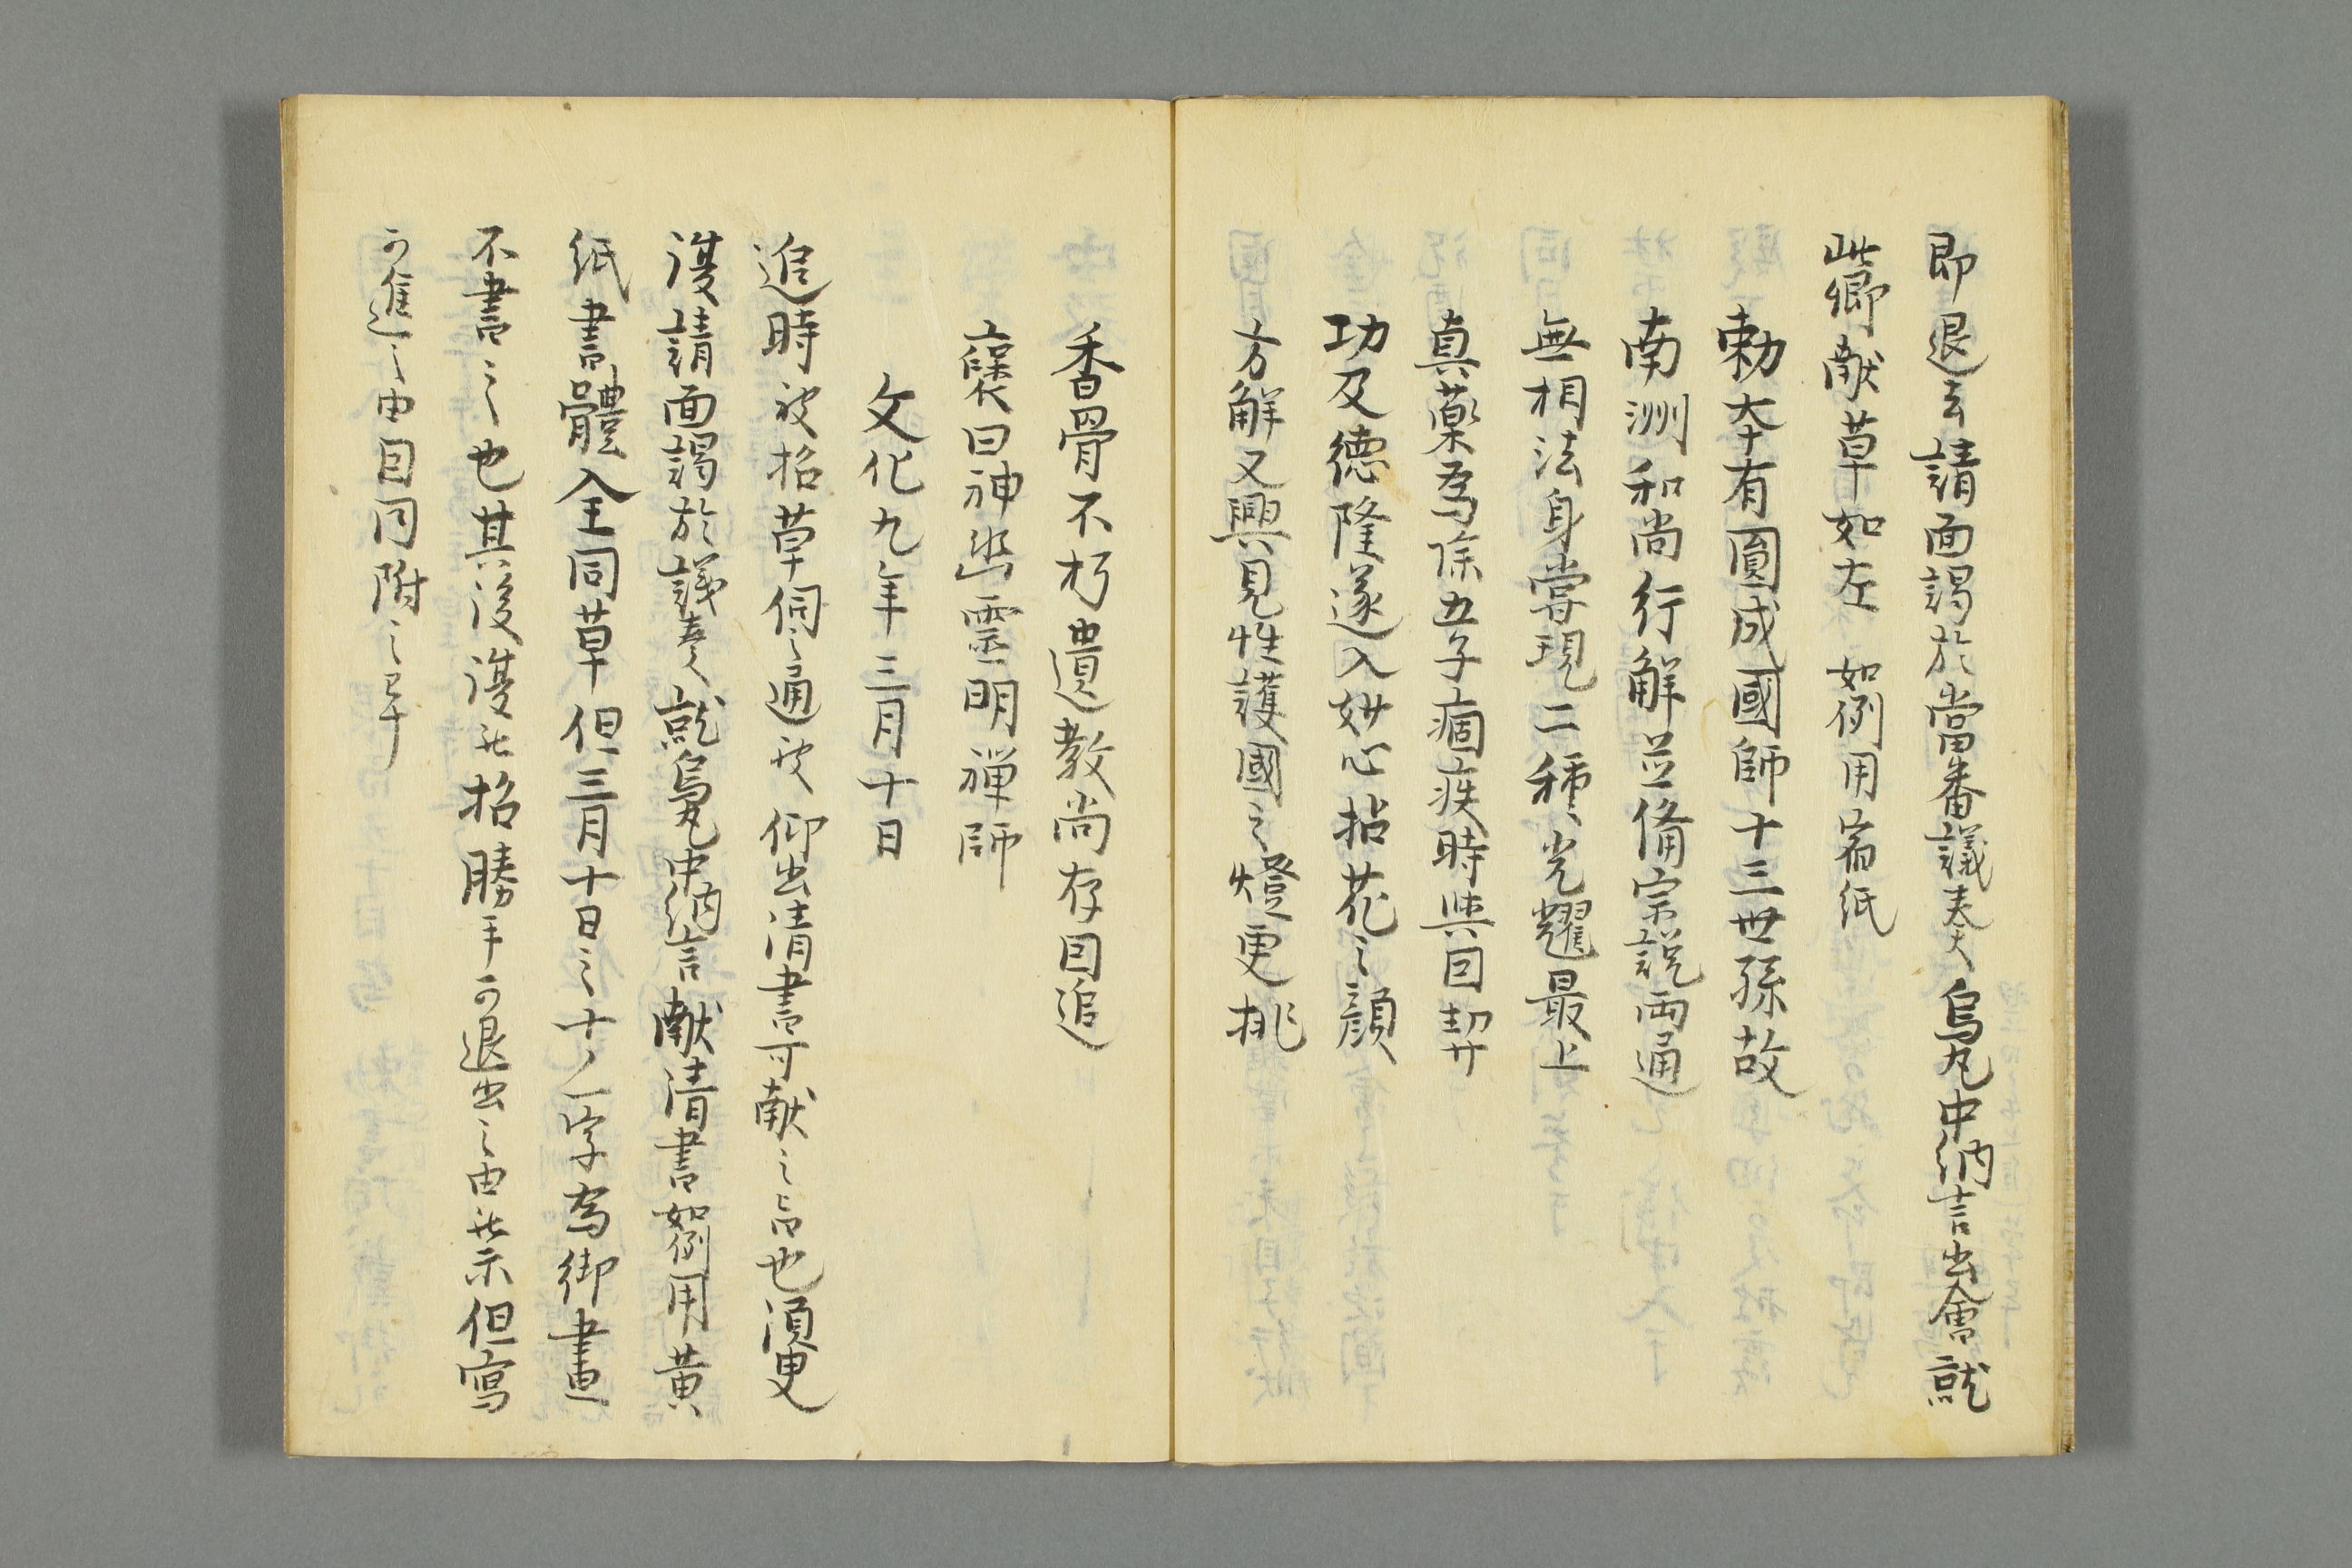 即退去請面謁於當番議奏烏丸中納言出會就
此卿献草如左 如例用宿紙
勅本有圓成國師十三世孫故
南洲和尚行解並備宗説両通
無相法身嘗現二種光耀最上
真薬為除五子痼疾時與因契
功及徳隆遂入妙心拈花之顔
方解又興見性護國之燈更挑
香骨不朽遺教尚存因追
褒曰神幽霊明禅師
文化九年三月十日
追時被招草伺之通被仰出清書可献之旨也須臾
復請面謁於議奏就烏丸中納言献清書如例用黄
紙書體全同草但三月十日之十ノ一字為御畫
不書之也其後復被招勝手可退出之由被示但寫
可進之由因同附之畢